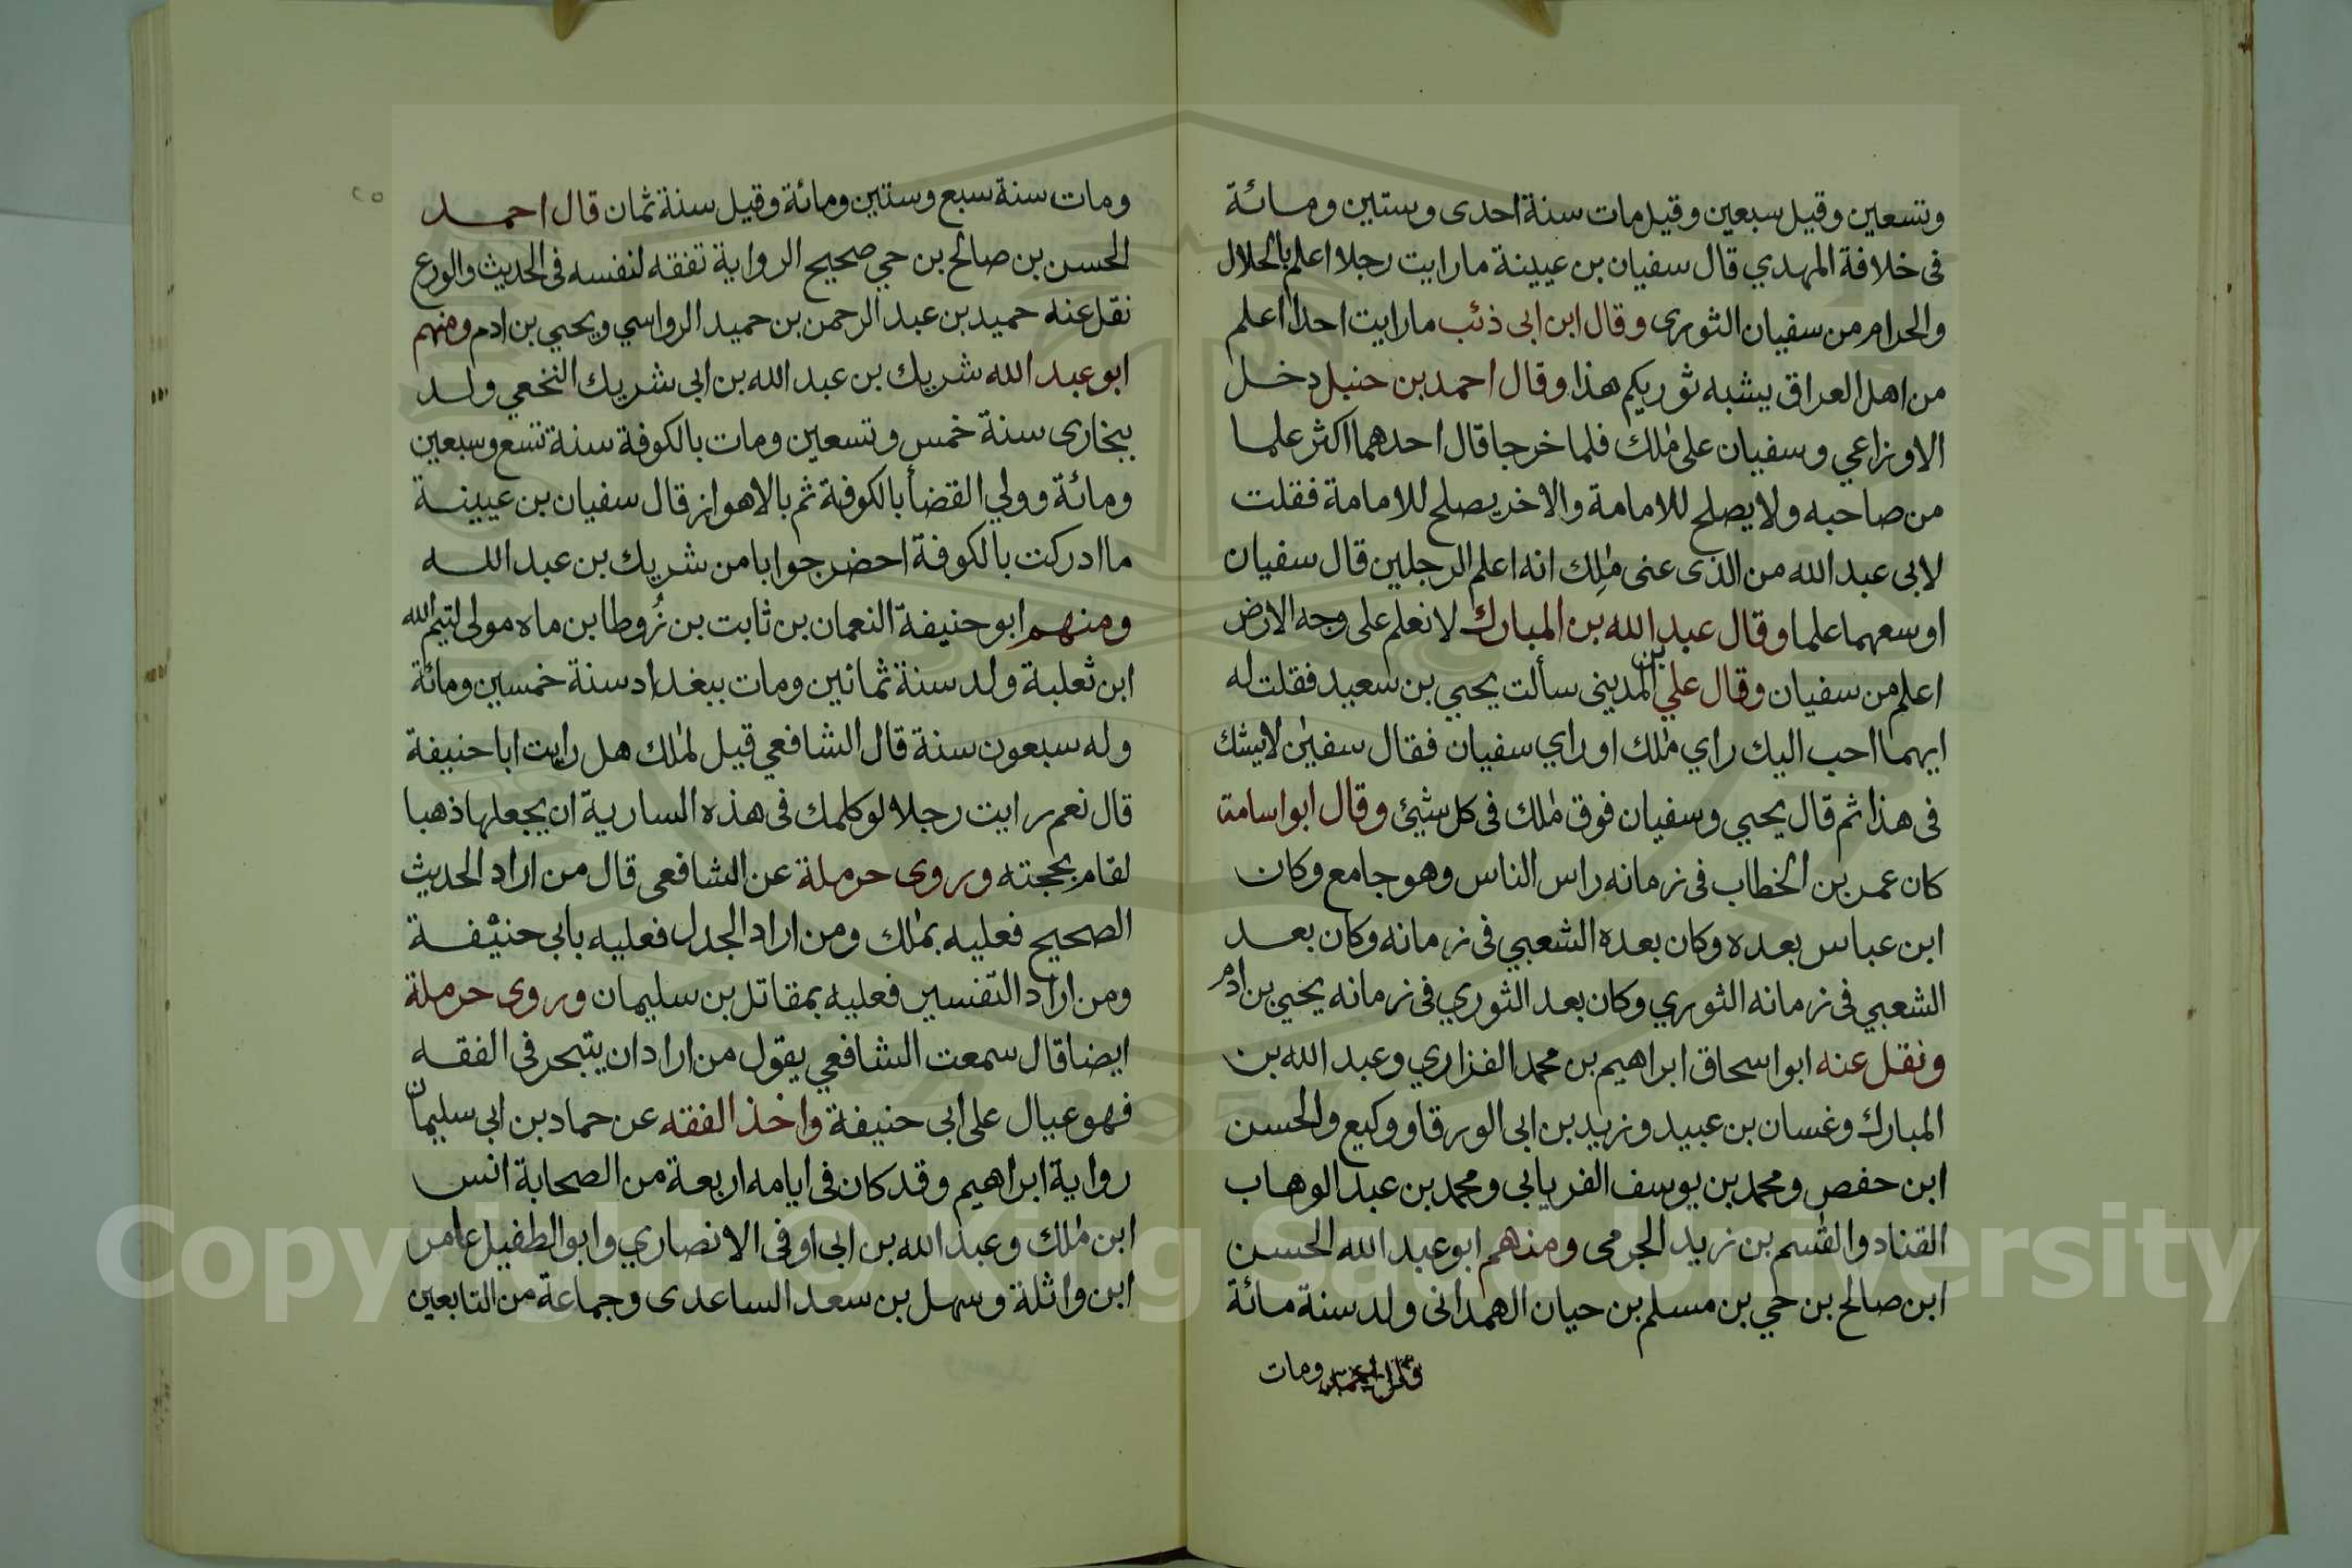 وتسعين وقيل سبعين وقيل مات سنة احدى وستين ومائة
فى خلافة المهدي قال سفيان بن عيينة ما رايت رجلا اعلم بالحلال
والحرام من سفيان الثورى وقال ابن ابى ذئب ما رايت احدا اعلم
من اهل العراق يشبه ثوريكم هذا وقال احمد بن حنبل دخل
الاوزاعي وسفيان على ملك فلما خرجا قال احدهما اكثر علما
من صاحبه ولا يصلح للامامة والاخر يصلح للامامة فقلت
لابى عبد الله من الذى عنى ملك انه اعلم الرجلين قال سفيان
اوسعهما علما وقال عبد الله بن المبارك لا نعلم على وجه الارض
اعلم من سفيان وقال علي بن المدينى سألت يحيي بن سعيد فقلت له
ايهما احب اليك راي ملك او راي سفيان فقال سفين لا يشك
فى هذا ثم قال يحيي وسفيان فوق ملك فى كل شيئ وقال ابو اسامة
كان عمر بن الخطاب فى زمانه راس الناس وهو جامع وكان
ابن عباس بعده وكان بعده الشعبي فى زمانه وكان بعد
الشعبي فى زمانه الثوري وكان بعد الثوري فى زمانه يحيي بن ادم
ونقل عنه ابو اسحاق ابراهيم بن محمد الفزاري وعبد الله بن
المبارك وغسان بن عبيد وزيد بن ابى الورقا ووكيع والحسن
ابن حفص ومحمد بن يوسف الفريابي ومحمد بن عبد الوهاب
القناد والقسم بن زيد الجرمى ومنهم ابو عبد الله الحسن
ابن صالح بن حي بن مسلم بن حيان الهمدانى ولد سنة مائة
ومات
ومات سنة سبع وستين ومائة وقيل سنة ثمان قال احمد
الحسن بن صالح بن حي صحيح الرواية تفقه لنفسه فى الحديث والورع
نقل عنه حميد بن عبد الرحمن بن حميد الرواسي ويحيي بن ادم ومنهم
ابو عبد الله شريك بن عبد الله بن ابى شريك النخعي ولد
ببخارى سنة خمس وتسعين ومات بالكوفة سنة تسع وسبعين
ومائة وولي القضأ بالكوفة ثم بالاهواز قال سفيان بن عيينة
ما ادركت بالكوفة احضر جوابا من شريك بن عبد الله
ومنهم ابو حنيفة النعمان بن ثابت بن زُوطا بن ماه مولى لتيم الله
ابن ثعلبة ولد سنة ثمانين ومات ببغداد سنة خمسين ومائة
وله سبعون سنة قال الشافعي قيل لملك هل رايت ابا حنيفة
قال نعم رايت رجلا لو كلمك فى هذه السارية ان يجعلها ذهبا
لقام بحجته وروى حرملة عن الشافعى قال من اراد الحديث
الصحيح فعليه بملك ومن اراد الجدل فعليه بابي حنيفة
ومن اراد التفسير فعليه بمقاتل بن سليمان وروى حرملة
ايضا قال سمعت الشافعي يقول من اراد ان يتبحر فى الفقه
فهو عيال على ابى حنيفة واخذ الفقه عن حماد بن ابى سليمان
رواية ابراهيم وقد كان فى ايامه اربعة من الصحابة انس
ابن ملك وعبد الله بن ابى اوفى الانصاري وابو الطفيل عامر
ابن واثلة وسهل بن سعد الساعدى وجماعة من التابعين
Copyright © King Saud University